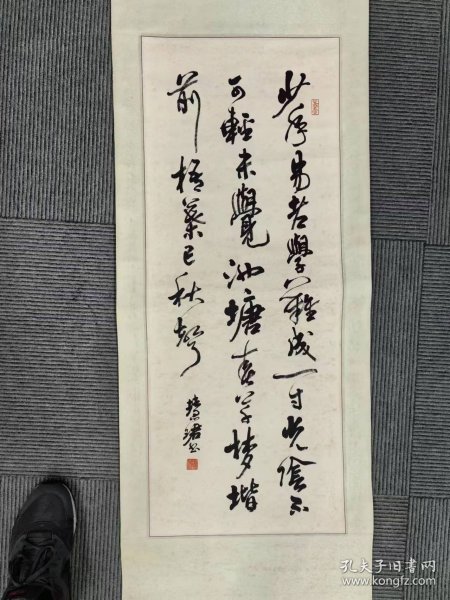 少年易老學難成一寸光陰不
可輕未覺池塘春草夢堦
前梧葉已秋聲
孔夫子旧书网
www.kongfz.com